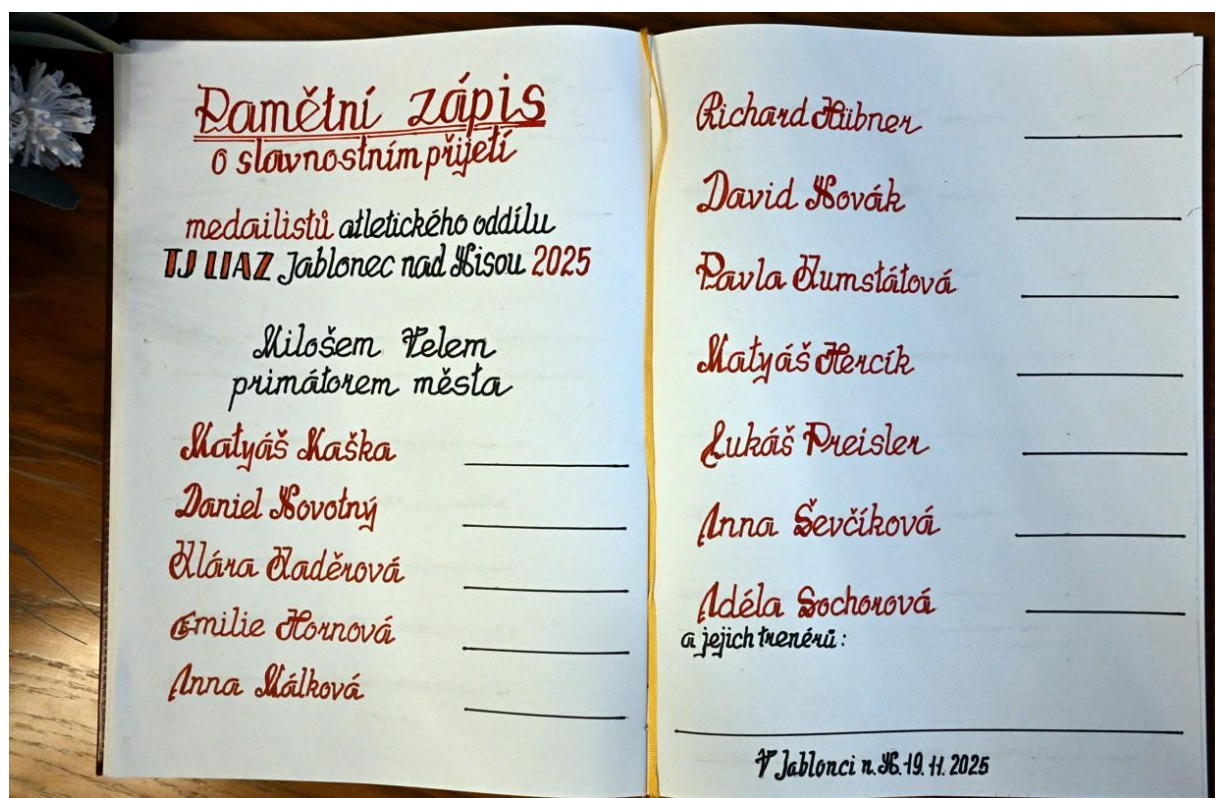 Pamětní zápis
o slavnostním přijetí
medailistů atletického oddílu
TJ LIAZ Jablonec nad Nisou 2025
Milošem Velem
primátorem města
Matyáš Maška
Daniel Novotný
Klára Kaděrová
Emilie Hornová
Anna Málková
Richard Hübner
David Novák
Pavla Kumstátová
Matyáš Hercík
Lukáš Preisler
Anna Ševčíková
Adéla Sochorová
a jejich trenérů:
V Jablonci n. N. 19. 11. 2025